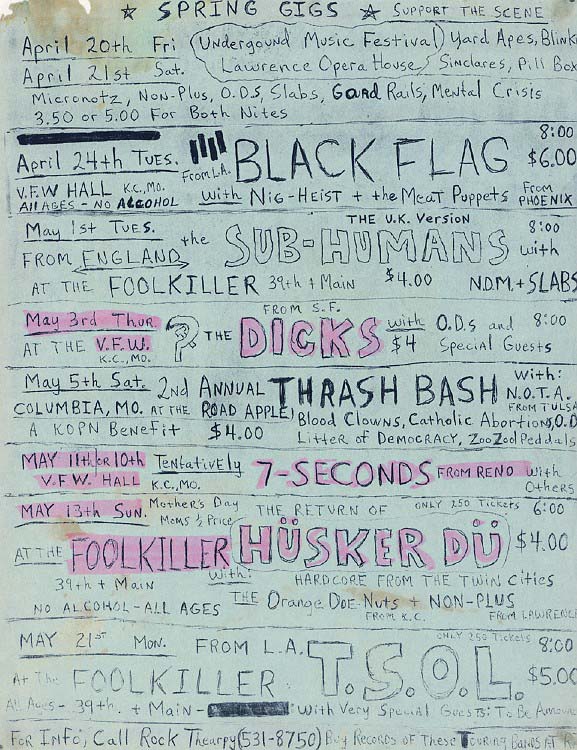 ☆ SPRING GIGS ☆ SUPPORT THE SCENE
April 20th Fri (Undergound Music Festival) Yard Apes, Blink
April 21st Sat. Lawrence Opera House Sinclares, Pill Box
Micronotz, Non-Plus, O.D.S, Slabs, Gaard Rails, Mental Crisis
3.50 or 5.00 For Both Nites
April 24th TUES. From L.A. BLACK FLAG 8:00 $6.00
V.F.W HALL K.C., MO. with NIG-HEIST + the MEAT PUPPETS From PHOENIX
All AGES - NO ALCOHOL
THE U.K. Version
May 1st TUES. the SUB-HUMANS 8:00
FROM ENGLAND with
AT THE FOOLKILLER 39th + Main $4.00 N.D.M. + SLABS
FROM S.F.
May 3rd Thur ? THE DICKS with O.D.s and 8:00
AT THE V.F.W. $4 Special Guests
K.C., MO.
May 5th Sat. 2nd ANNUAL THRASH BASH With:
N.O.T.A.
FROM TULSA
COLUMBIA, MO. AT THE ROAD APPLE Blood Clowns, Catholic Abortions, O.D
A KOPN Benefit $4.00 Litter of Democracy, Zoo Zool Peddals
MAY 11th or 10th Tentatively 7-SECONDS FROM RENO with
V.F.W. HALL K.C., MO. Others
MAY 13th SUN. Mother's Day THE RETURN OF ONLY 250 Tickets 6:00
Moms ½ Price
AT THE FOOLKILLER HÜSKER DÜ $4.00
39th + Main with: HARDCORE FROM THE TWIN Cities
NO ALCOHOL - ALL AGES THE Orange Doe-Nuts + NON-PLUS
FROM K.C. FROM LAWRENCE
ONLY 250 Tickets
MAY 21st Mon. FROM L.A. T.S.O.L. 8:00
At The FOOLKILLER $5.00
All Ages - 39th. + Main - With Very Special Guests: To Be Announ
For Info, Call Rock Thearpy (531-8750) Buy Records of These Touring Bands AT R